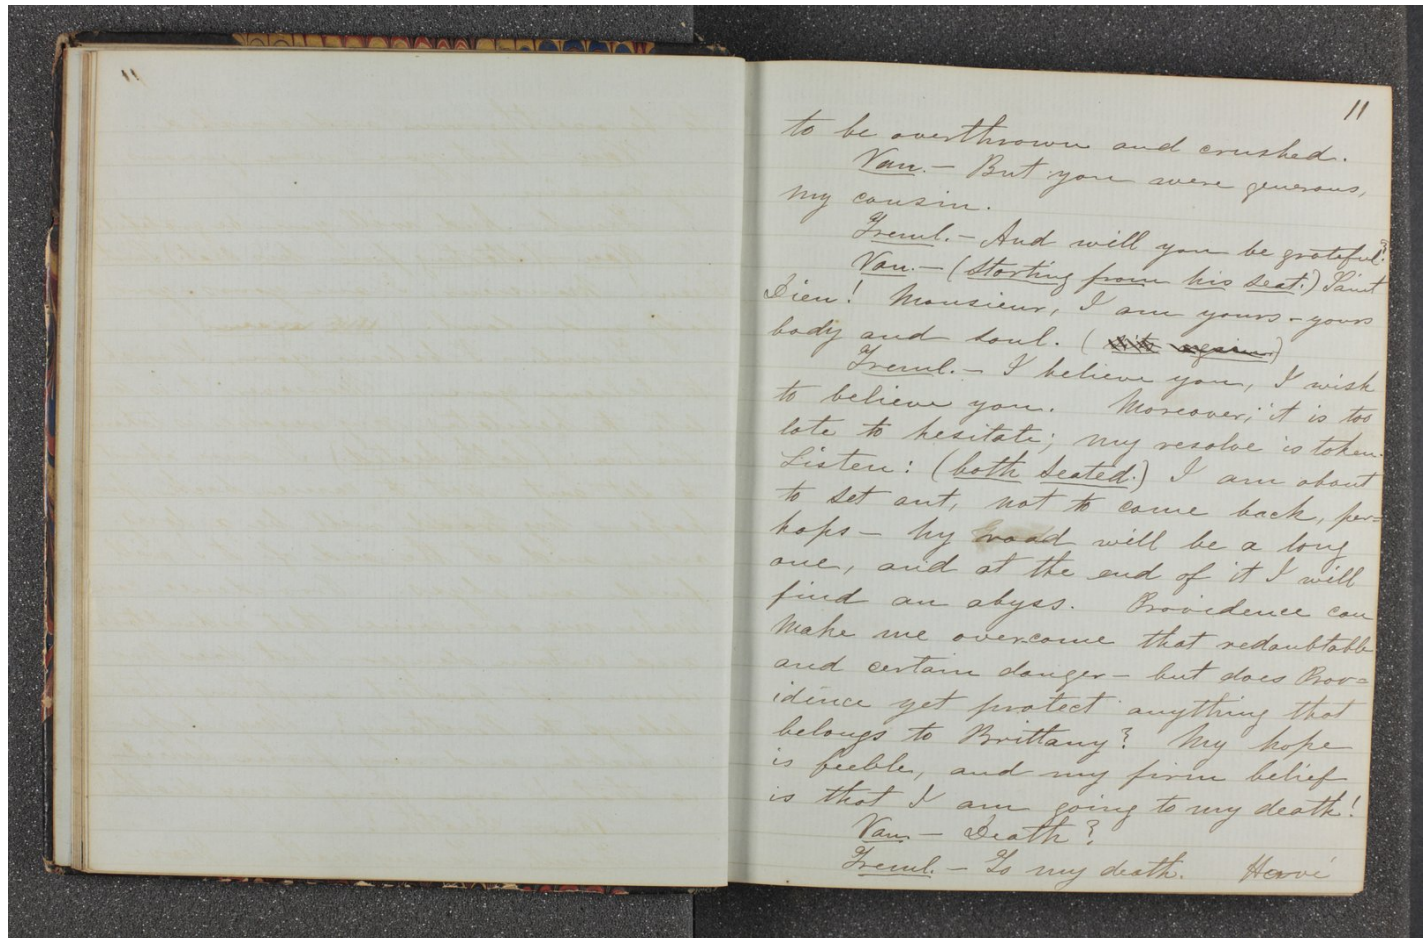 11
to be overthrown and crushed.
Van. — But you were generous,
my cousin.
Treml. — And will you be grateful?
Van. — (starting from his seat.) Saint
Dieu! Monsieur, I am yours - yours
body and soul. (
Treml. — I believe you, I wish
to believe you. Moreover, it is too
late to hesitate; my resolve is taken.
Listen: (both seated.) I am about
to set out, not to come back, per=
haps — My road will be a long
one, and at the end of it I will
find an abyss. Providence can
make me overcome that redoubtable
and certain danger — but does Prov=
idence yet protect anything that
belongs to Brittany? My hope
is feeble, and my firm belief
is that I am going to my death!
Van. — Death?
Treml. — To my death. Hervé